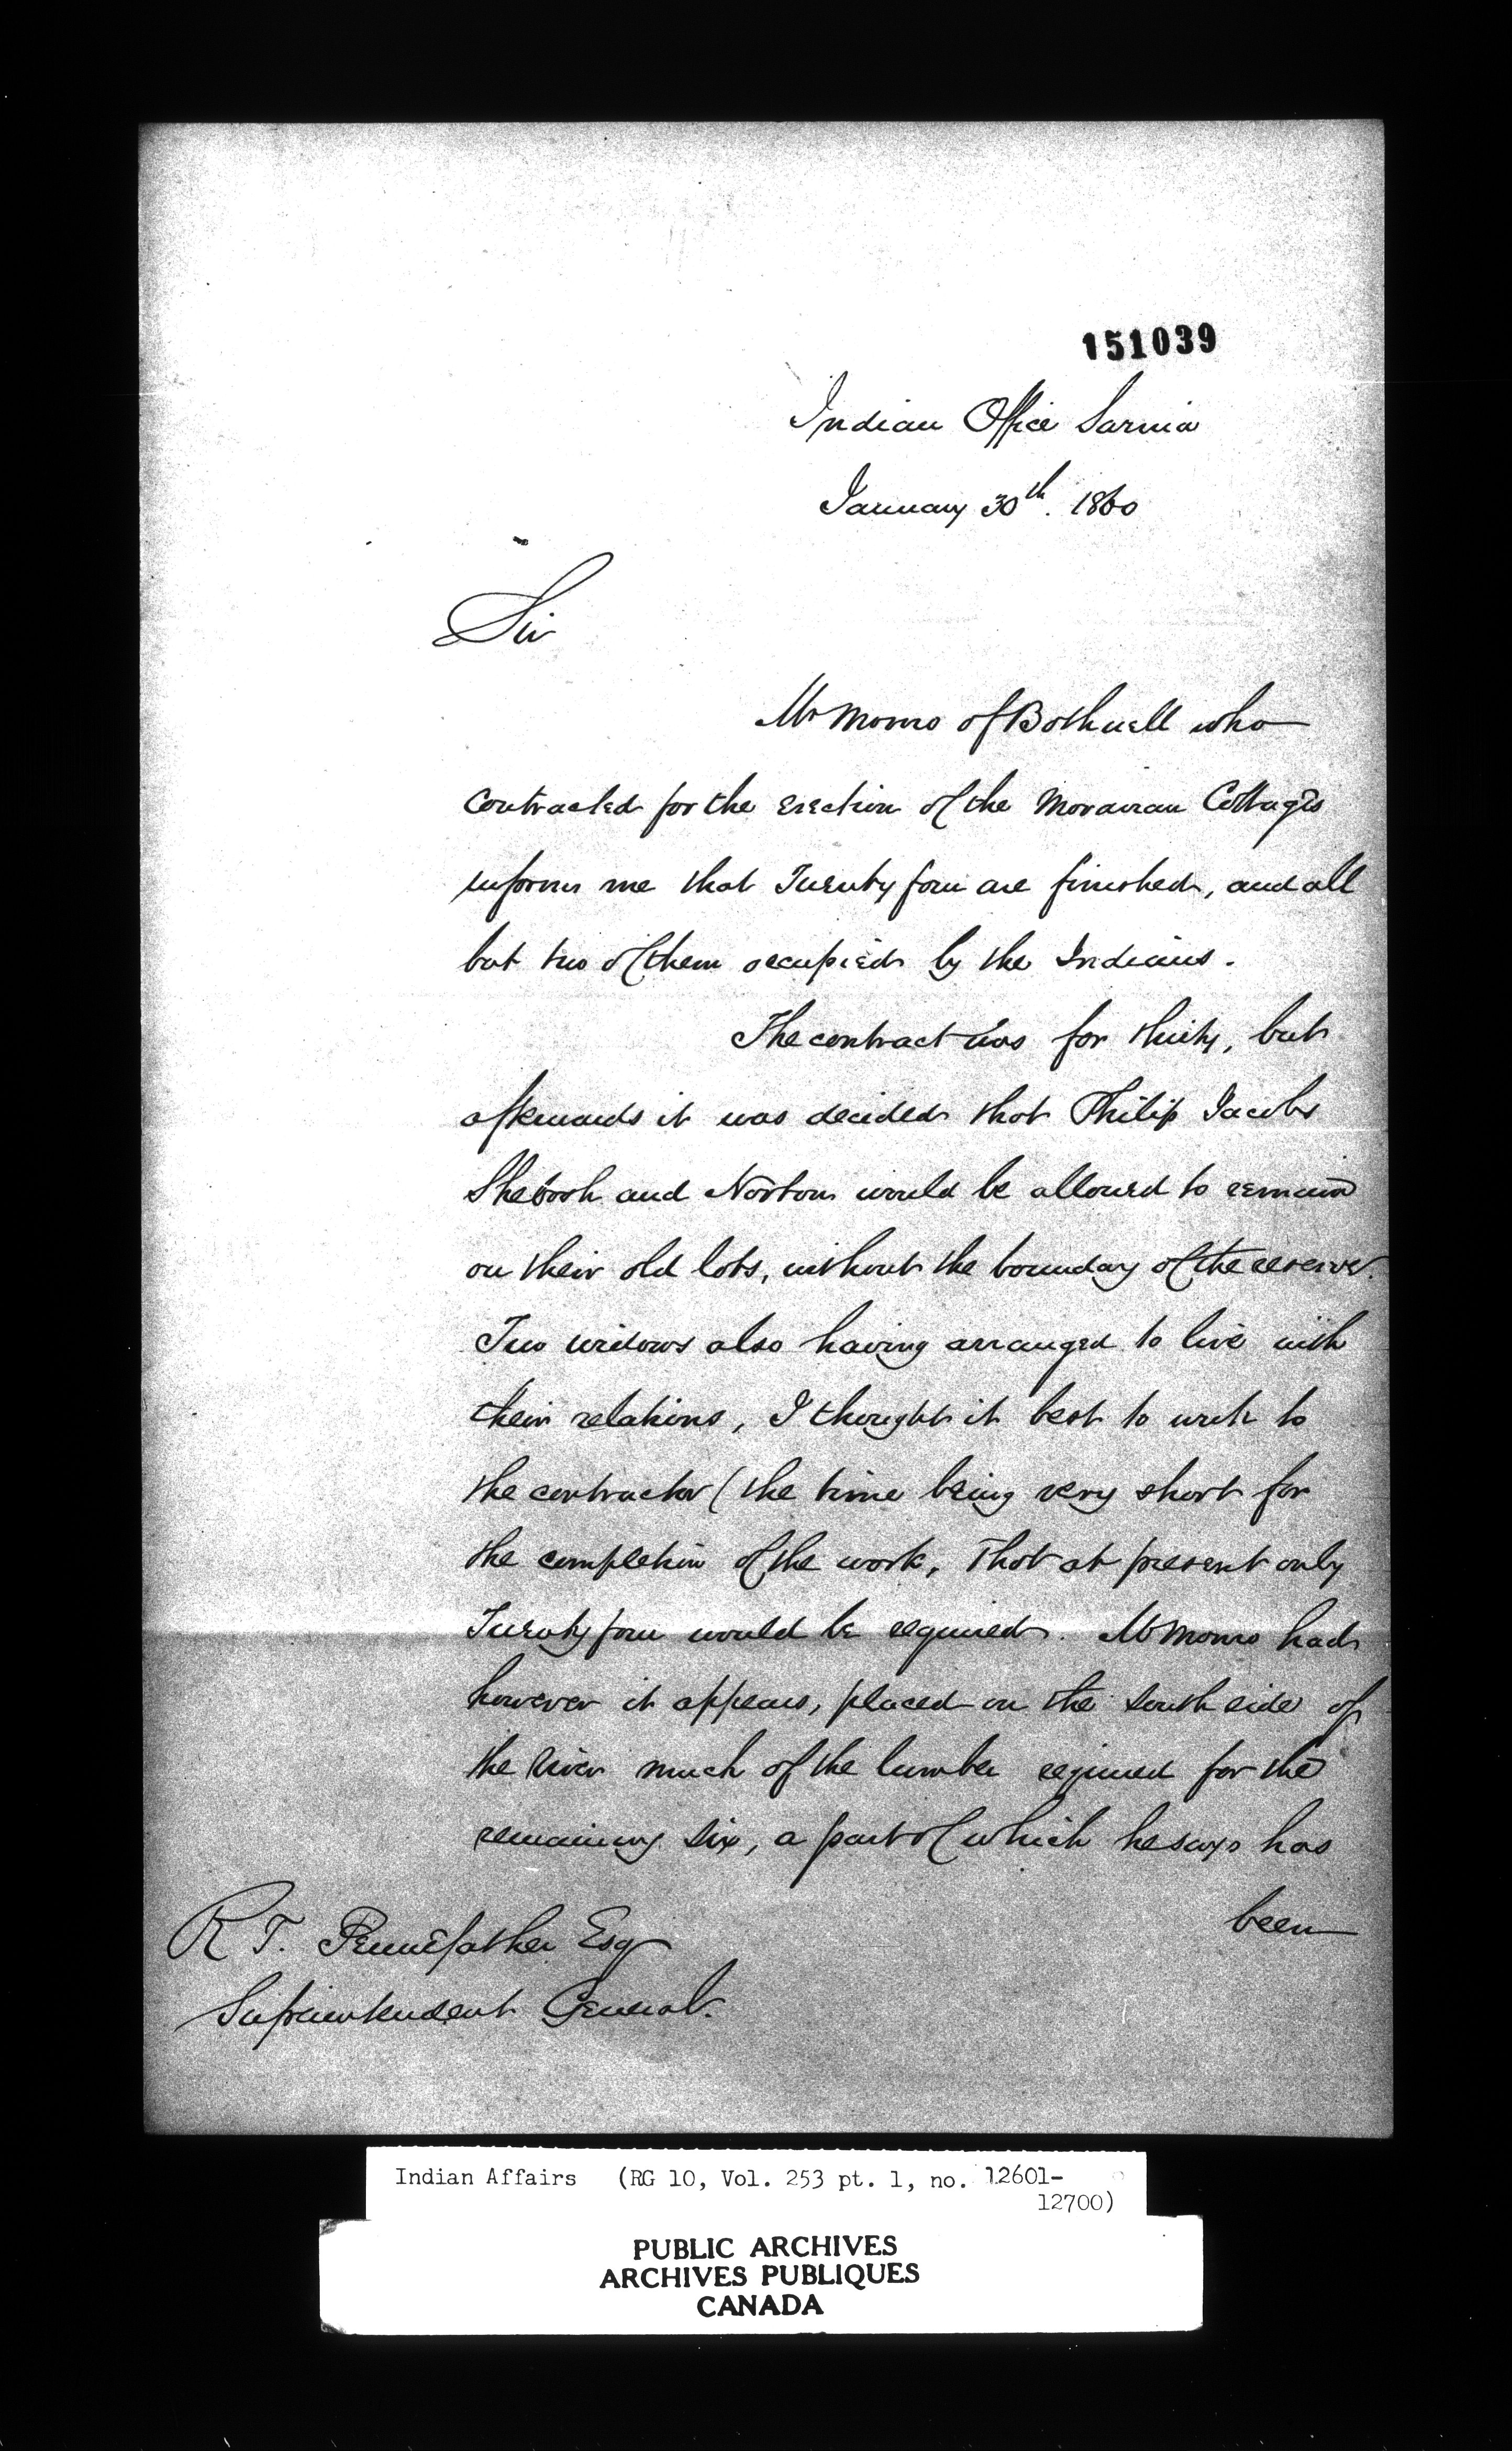 151039
Indian Office Sarnia
January 30th. 1860
Sir
Mr Monro of Bothwell who
contracted for the erection of the Moravian Cottages
informs me that Twenty four are finished, and all
but two of them occupied by the Indians.
The contract was for thirty, but
afterwards it was decided that Philip Jacobs
Shebosh and Norton would be allowed to remain
on their old lots, without the boundary of the reserve.
Two widows also having arranged to live with
their relations, I thought it best to write to
the contractor (the time being very short for
the completion of the work, that at present only
Twenty four would be required. Mr Monro had
however it appears, placed on the South side of
the River much of the lumber required for the
remaining six, a part of which he says has
been
R T. Pennefather Esq
Superintendent General.
Indian Affairs (RG 10, Vol. 253 pt. 1, no. 12601-
12700)
PUBLIC ARCHIVES
ARCHIVES PUBLIQUES
CANADA